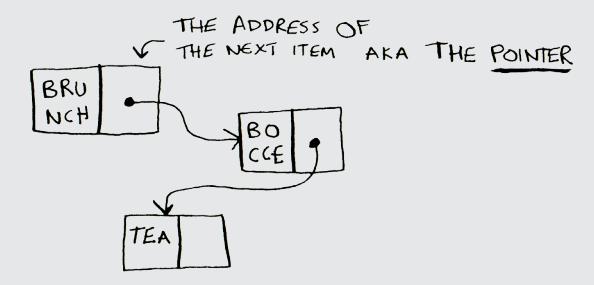 THE ADDRESS OF
THE NEXT ITEM AKA THE POINTER
BRU
NCH
BO
CCE
TEA